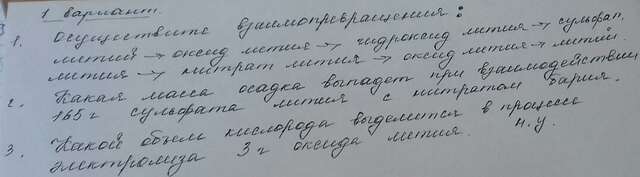 1 вариант.
1. Осуществите взаимопревращения:
литий → оксид лития → гидроксид лития → сульфат
лития → нитрат лития → оксид лития → литий.
2. Какая масса осадка выпадет при взаимодействии
165 г сульфата лития с нитратом бария.
3. Какой объем кислорода выделится в процессе
электролиза 3 г оксида лития. н.у.